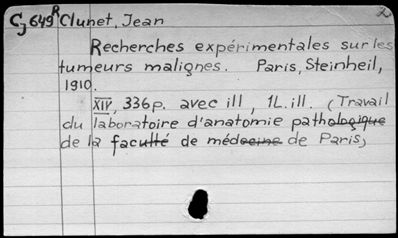 Cj649R Clunet, Jean
Recherches expérimentales sur les
tumeurs malignes. Paris, Steinheil,
1910.
XIV, 336p. avec ill, 1L.ill. (Travail
du laboratoire d'anatomie pathologique
de la faculté de médecine de Paris)